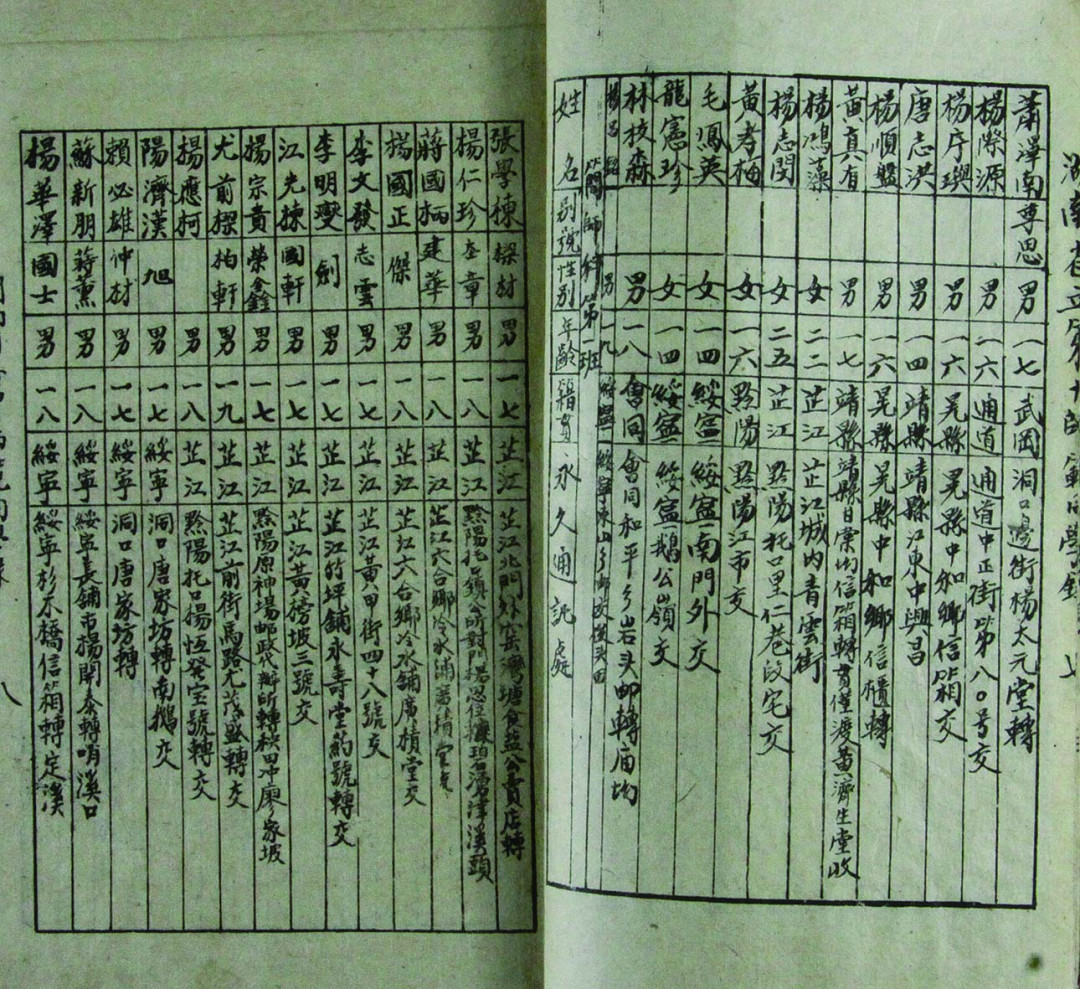 湖南省立第十師
同學錄
七
蕭澤南 尊思 男 一七 武岡 洞口邊街楊太元堂轉
楊際源 男 二六 通道 通道中正街第八〇号交
楊序璵 男 一六 晃縣 晃縣中和鄉信箱交
唐志洪 男 一四 靖縣 靖縣江東中興昌
楊順盤 男 一六 晃縣 晃縣中和鄉信櫃轉
黃真有 男 一七 靖縣 靖縣信箱轉黃濟生堂收
楊鴻藻 女 二二 芷江 芷江城內青雲街
楊志閔 女 二五 芷江 黔陽托口里仁巷段宅交
黃孝梅 女 一六 黔陽 黔陽江市交
毛鳳英 女 一四 綏寧 綏寧南門外交
龍憲珍 女 一四 綏寧 綏寧鵝公嶺交
林校森 男 一八 會同 會同和平乡岩头邮轉庙坳
楊昌 男 一九 綏寧 綏寧東山乡
簡師科第一班
姓名 別號 性別 年齡 籍貫 永久通訊處
張學棟 樑材 男 一七 芷江 芷江北門外窑灣塘食盐公賣店轉
楊仁珍 奎章 男 一八 芷江 黔陽托口鎮公所對門楊恩
蔣國柄 建華 男 一八 芷江 芷江六合鄉冷水鋪
楊國正 傑 男 一八 芷江 芷江六合鄉冷水鋪廣積堂交
李文發 志雲 男 一八 芷江 芷江黃甲街四十八號交
李明燮 劍 男 一七 芷江 芷江竹坪鋪永壽堂药號轉交
江光揀 國軒 男 一七 芷江 芷江黃榜坡三號交
楊宗黃 榮鑫 男 一七 芷江 黔陽原神場邮政代辦所轉秧田冲廖家坡
尤前樑 柏軒 男 一九 芷江 芷江前街馬路尤茂盛轉交
楊應柯 男 一八 芷江 黔陽托口楊恆發宝號轉交
陽濟漢 旭 男 一七 綏寧 洞口唐家坊轉南鵝交
賴必雄 仲材 男 一七 綏寧 洞口唐家坊轉
蘇新朋 蒋薰 男 一八 綏寧 綏寧長鋪市楊開泰轉哨溪口
楊華澤 國士 男 一八 綏寧 綏寧杉木橋信箱轉定溪
八